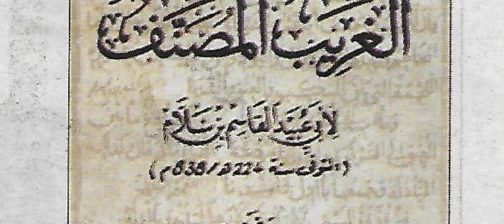 الغريب المصنف
لأبي عبيد القاسم بن سلام
(المتوفى سنة 224هـ/838م)